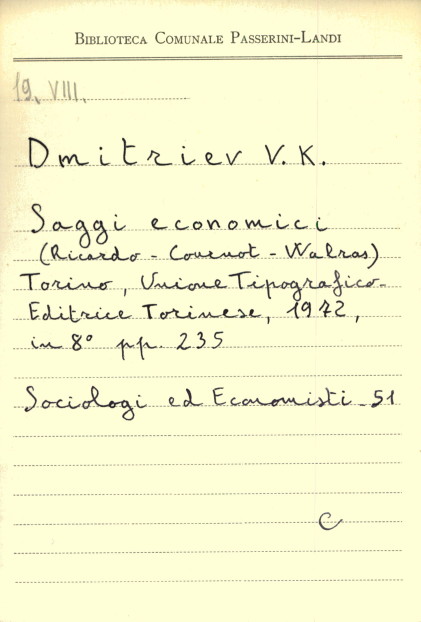 BIBLIOTECA COMUNALE PASSERINI-LANDI
19. VIII.
Dmitriev V. K.
Saggi economici
(Ricardo - Cournot - Walras)
Torino, Unione Tipografico-
Editrice Torinese, 1972,
in 8° pp. 235
Sociologi ed Economisti - 51
C